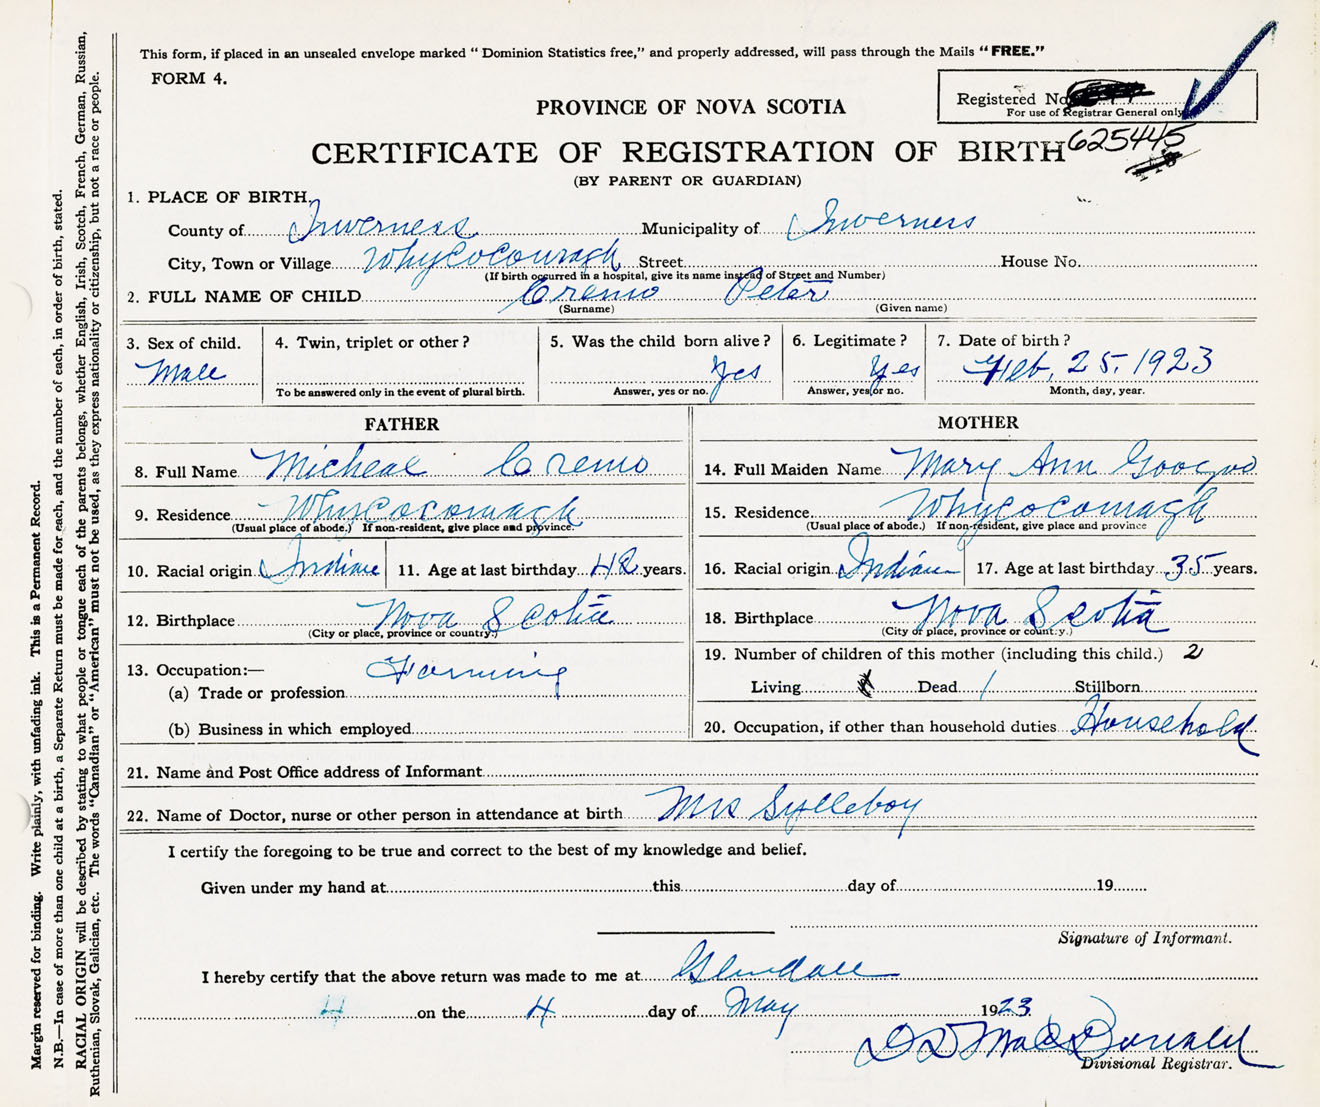 This form, if placed in an unsealed envelope marked "Dominion Statistics free," and properly addressed, will pass through the Mails "FREE."
FORM 4.
Registered No.
For use of Registrar General only
PROVINCE OF NOVA SCOTIA
625445
CERTIFICATE OF REGISTRATION OF BIRTH
(BY PARENT OR GUARDIAN)
1. PLACE OF BIRTH,
County of Inverness Municipality of Inverness
City, Town or Village Whycocomagh Street House No.
(If birth occurred in a hospital, give its name instead of Street and Number)
2. FULL NAME OF CHILD Cremo Peter
(Surname) (Given name)
3. Sex of child. 4. Twin, triplet or other? 5. Was the child born alive? 6. Legitimate? 7. Date of birth?
Male Yes Yes Feb, 25, 1923
To be answered only in the event of plural birth. Answer, yes or no. Answer, yes or no. Month, day, year.
FATHER MOTHER
8. Full Name Micheal Cremo 14. Full Maiden Name Mary Ann Googoo
9. Residence Whycocomagh 15. Residence Whycocomagh
(Usual place of abode.) If non-resident, give place and province. (Usual place of abode.) If non-resident, give place and province
10. Racial origin Indian 11. Age at last birthday 42 years. 16. Racial origin Indian 17. Age at last birthday 35 years.
12. Birthplace Nova Scotia 18. Birthplace Nova Scotia
(City or place, province or country.) (City or place, province or country.)
13. Occupation:— Farming 19. Number of children of this mother (including this child.) 2
(a) Trade or profession Living Dead 1 Stillborn
(b) Business in which employed 20. Occupation, if other than household duties Household
21. Name and Post Office address of Informant
22. Name of Doctor, nurse or other person in attendance at birth Mrs Sylleboy
I certify the foregoing to be true and correct to the best of my knowledge and belief.
Given under my hand at this day of 19
Signature of Informant.
I hereby certify that the above return was made to me at Glendale
4 on the 4 day of May 1923
D D MacDonald
Divisional Registrar.
Margin reserved for binding. Write plainly, with unfading ink. This is a Permanent Record.
N.B.—In case of more than one child at a birth, a Separate Return must be made for each, and the number of each, in order of birth, stated.
RACIAL ORIGIN will be described by stating to what people or tongue each of the parents belongs, whether English, Irish, Scotch, French, German, Russian,
Ruthenian, Slovak, Galician, etc. The words "Canadian" or "American" must not be used, as they express nationality or citizenship, but not a race or people.